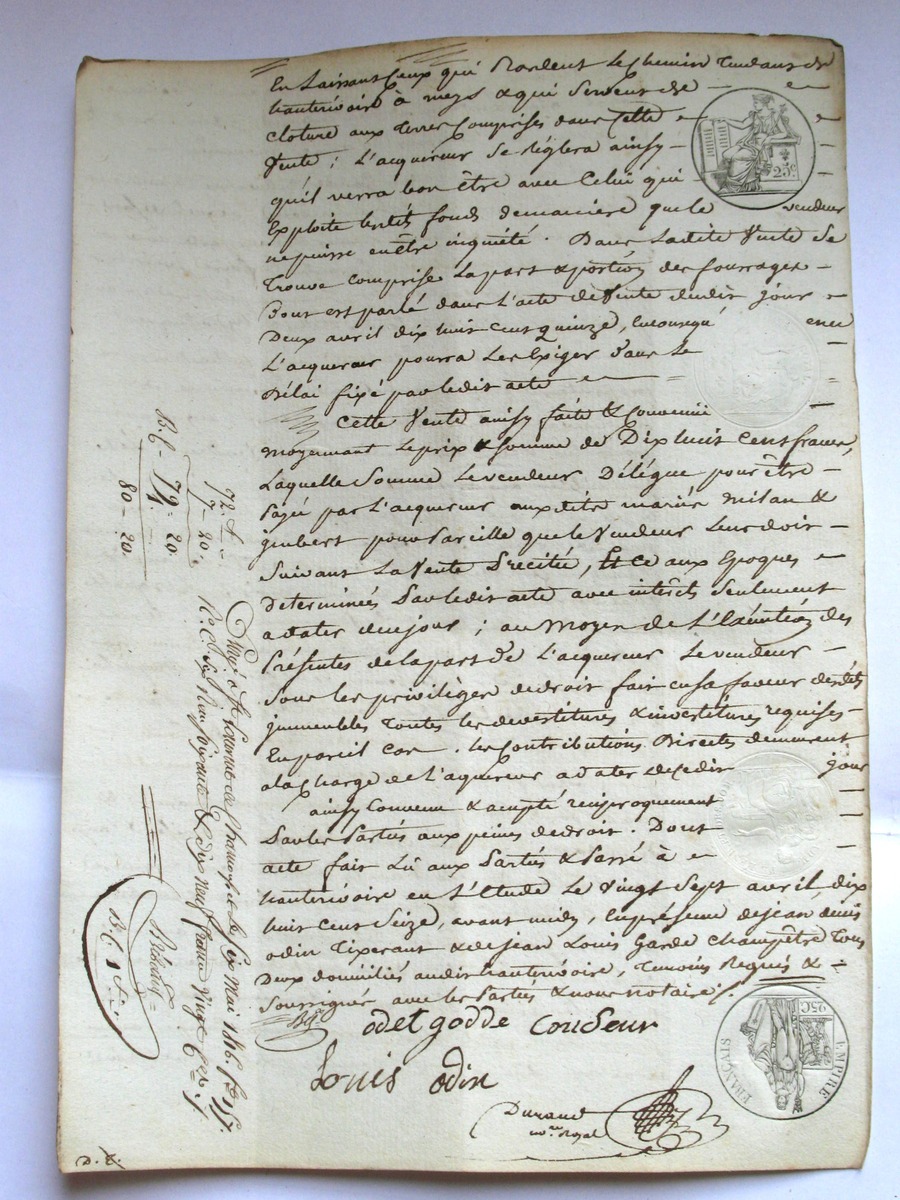 En Laissant Ceux qui Bordent le chemin Tendant de
hauterivoire à meys & qui Servent de
cloture aux terres Comprises dans Cette
Vente ; L'acquereur Se règlera ainsy
qu'il verra bon être avec Celui qui
Exploite lesdits fonds demaniere que le vendeur
ne puisse en être inquiété. Dans Ladite Vente Se
Trouve comprise La part & portion des fourrages
Dont est parlé dans L'acte de Vente dudit jour
Deux avril dix huit cent quinze,
L'acquereur pourra Les Exiger dans Le
Délai fixé par ledit acte
Cette Vente ainsy faite & Convenue
moyennant Le prix & Somme de Dix huit Cent francs,
Laquelle Somme Le vendeur Délègue pour être
Payée par L'acquereur auxdits mariés milan &
gubert pour Pareille que le Vendeur Leur doit
Suivant La Vente Précitée, Et ce aux Epoques
Determinées Par ledit acte avec intérêts Seulement
a dater de ce jour ; au moyen de L'Exécution des
Présentes de la part de L'acquereur Le vendeur
Sous les privilèges de droit fait en sa faveur desdits
immeubles Toutes les devestitures & investitures requises
En pareil cas. Les Contributions Directes demeurent
a la Charge de L'aquereur a dater de cedit jour
ainsy Convenu & accepté reciproquement
Par les Parties aux peines de droit. Dont
acte fait Lû aux Parties & Passé à
hauterivoire en L'Etude Le Vingt Sept avril dix
huit Cent Seize, avant midy, En présence de jean denis
odin Tixerant & de Jean Louis Garde Champêtre Tous
Deux domiciliés audit hauterivoire, Temoins Requis &
Soussignés avec les Parties & nous notaire.
odet godde Coudeur
Louis odin
Durand
no.re Royal
D. L.
72 f. -
7 - 20.
79 - 20
1.
80 - 20.
Enrg.é à St Laurent de Chamousset le Six Mai 1816. fo 157
R. C. Soixante Et Dix neuf francs Vingt C.es
25 C
EMPIRE FRANÇAIS
25C